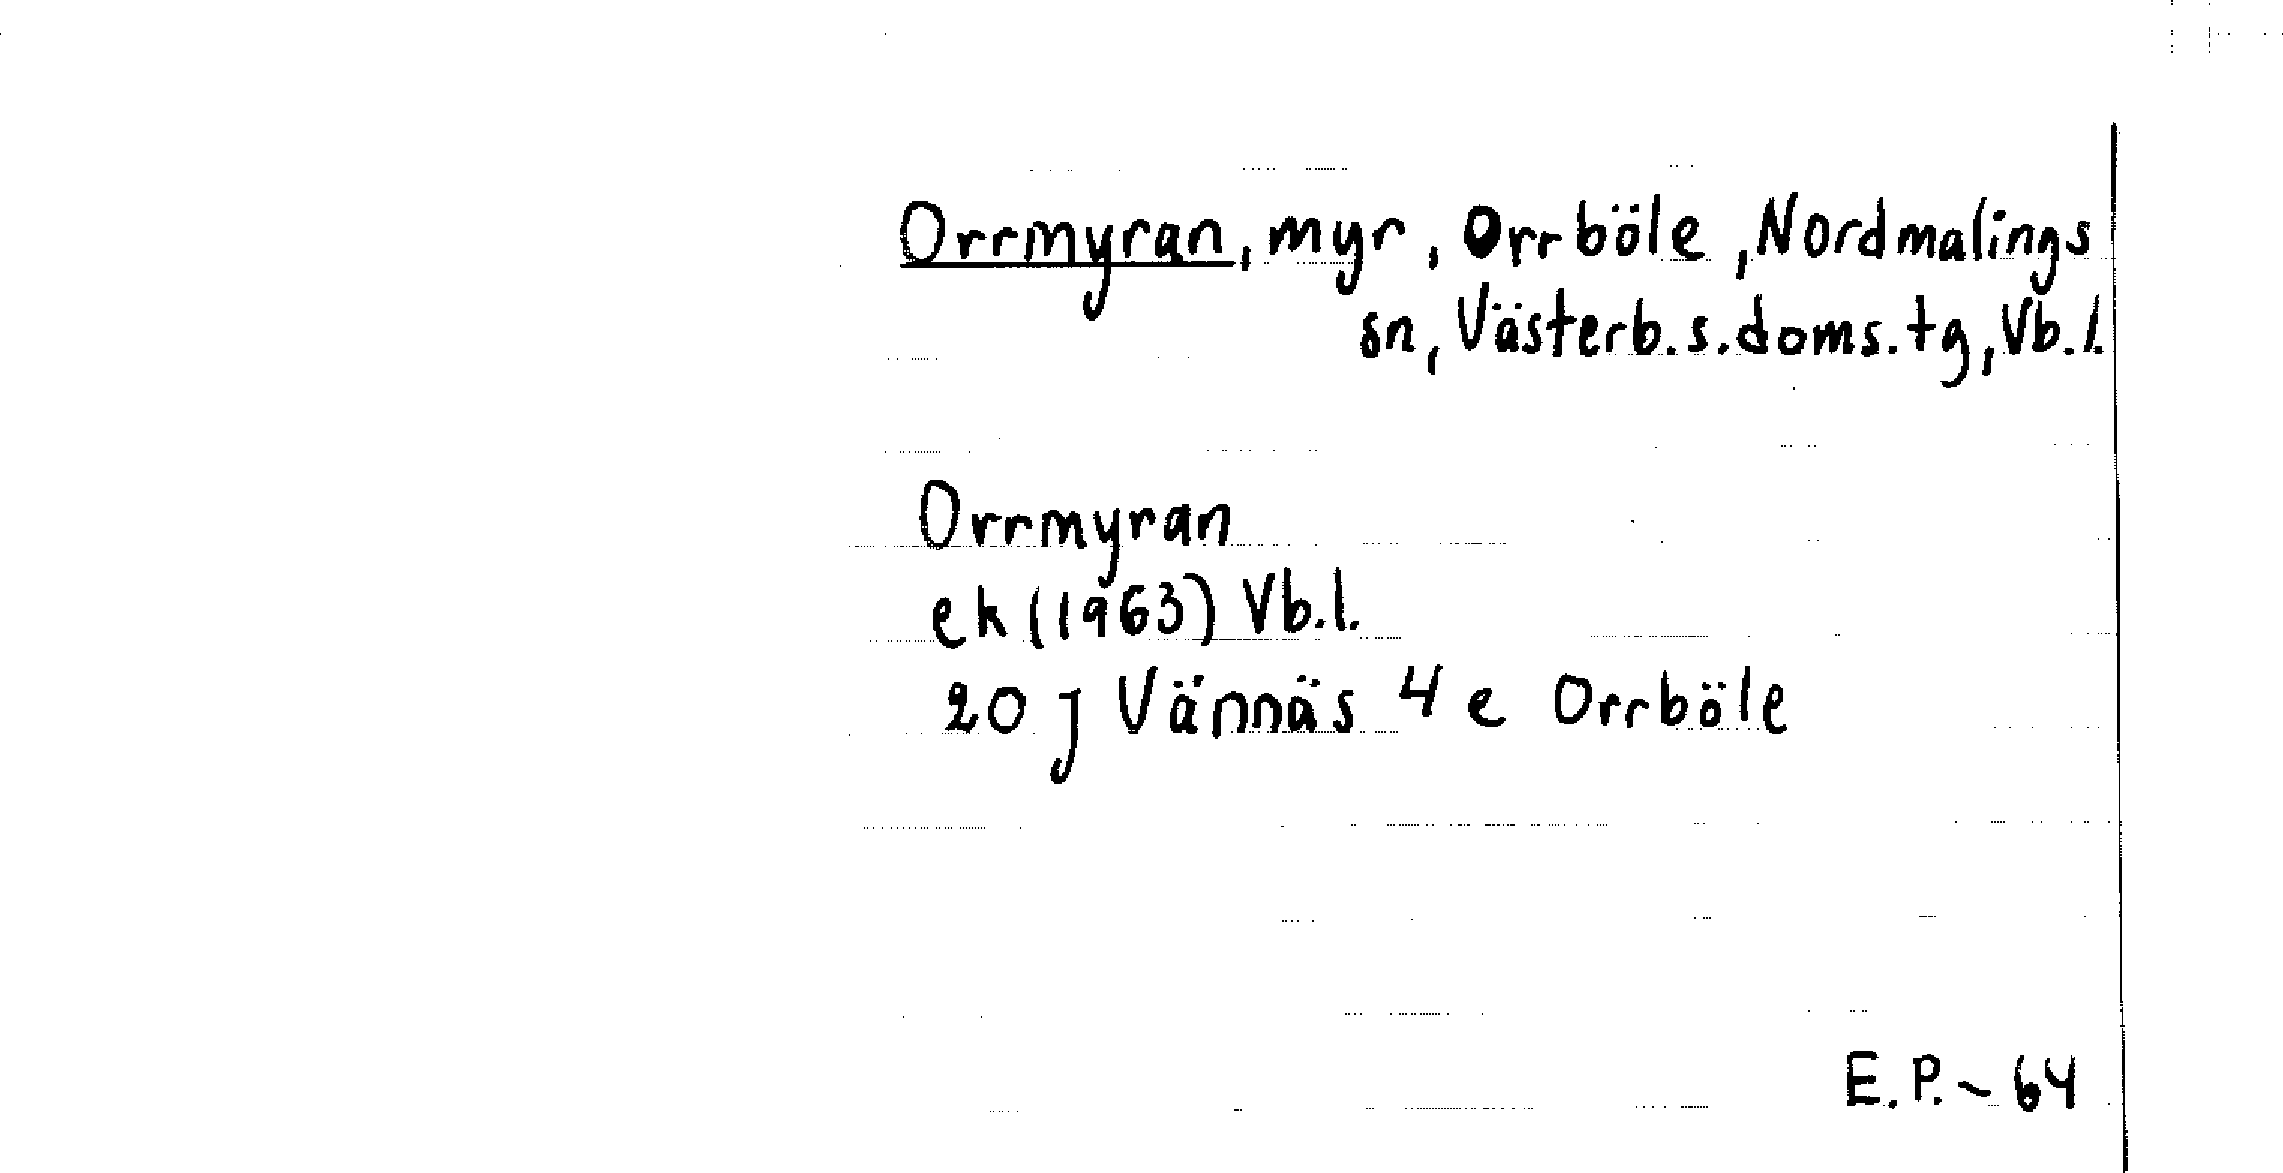 Orrmyran, myr, Orrböle, Nordmalings
sn, Västerb.s.doms.tg, Vb.l.
Orrmyran
ek (1963) Vb.l.
20 j Vännäs 4 e Orrböle
E.P. - 64